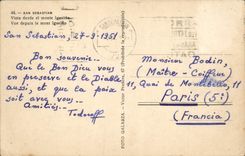 - SAN SEBASTIAN
Vista desde el monte Igueldo
Vue depuis le mont Igueldo
San Sebastian, 27-9-1951
Bon souvenir..
Que le Bon Dieu vous
en préserve et le Diable
aussi, et que la paix
soit avec vous..
Amitiés..
FOTO GALARZA
Monsieur Bodin,
(Maître-Coiffeur)
11, Quai de
Paris (5e)
(Francia)